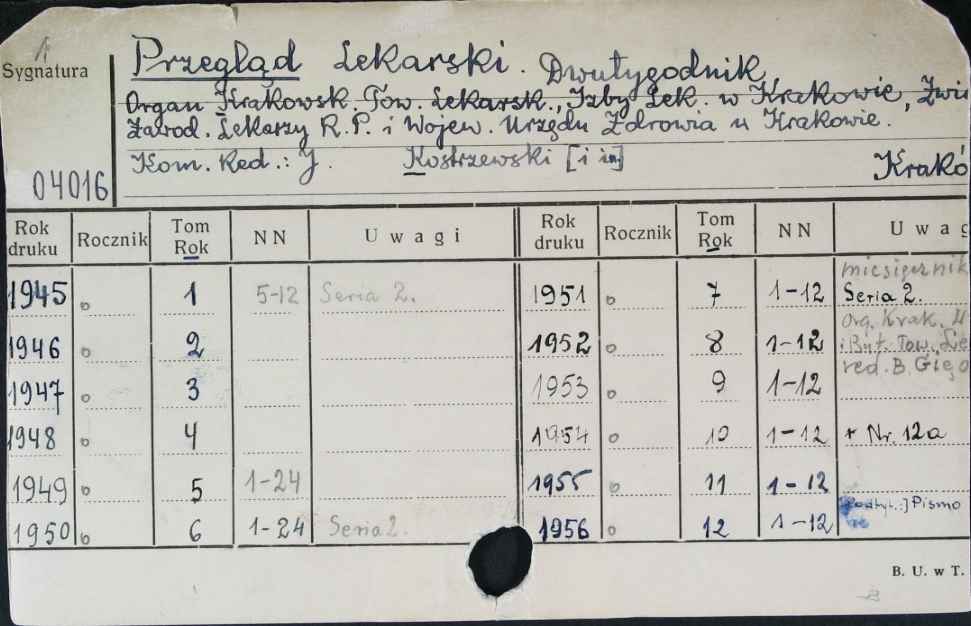 1
Sygnatura
04016
Przegląd Lekarski. Dwutygodnik
Organ Krakowsk. Tow. Lekarsk., Izby Lek. w Krakowie, Zwi
Zawod. Lekarzy R.P. i Wojew. Urzędu Zdrowia w Krakowie.
Kom. Red.: J. Kostrzewski [i in]
Krakó
Rok druku Rocznik Tom Rok NN Uwagi Rok druku Rocznik Tom Rok NN Uwag
1945 o 1 5-12 Seria 2. 1951 o 7 1-12 miesięcznik Seria 2.
1946 o 2 1952 o 8 1-12 Org. Krak. i Byt. Tow. Le
1947 o 3 1953 o 9 1-12 red. B. Gięo
1948 o 4 1954 o 10 1-12 + Nr. 12a
1949 o 5 1-24 1955 o 11 1-12
1950 o 6 1-24 Seria 2. 1956 o 12 1-12 Pismo
B. U. w T.